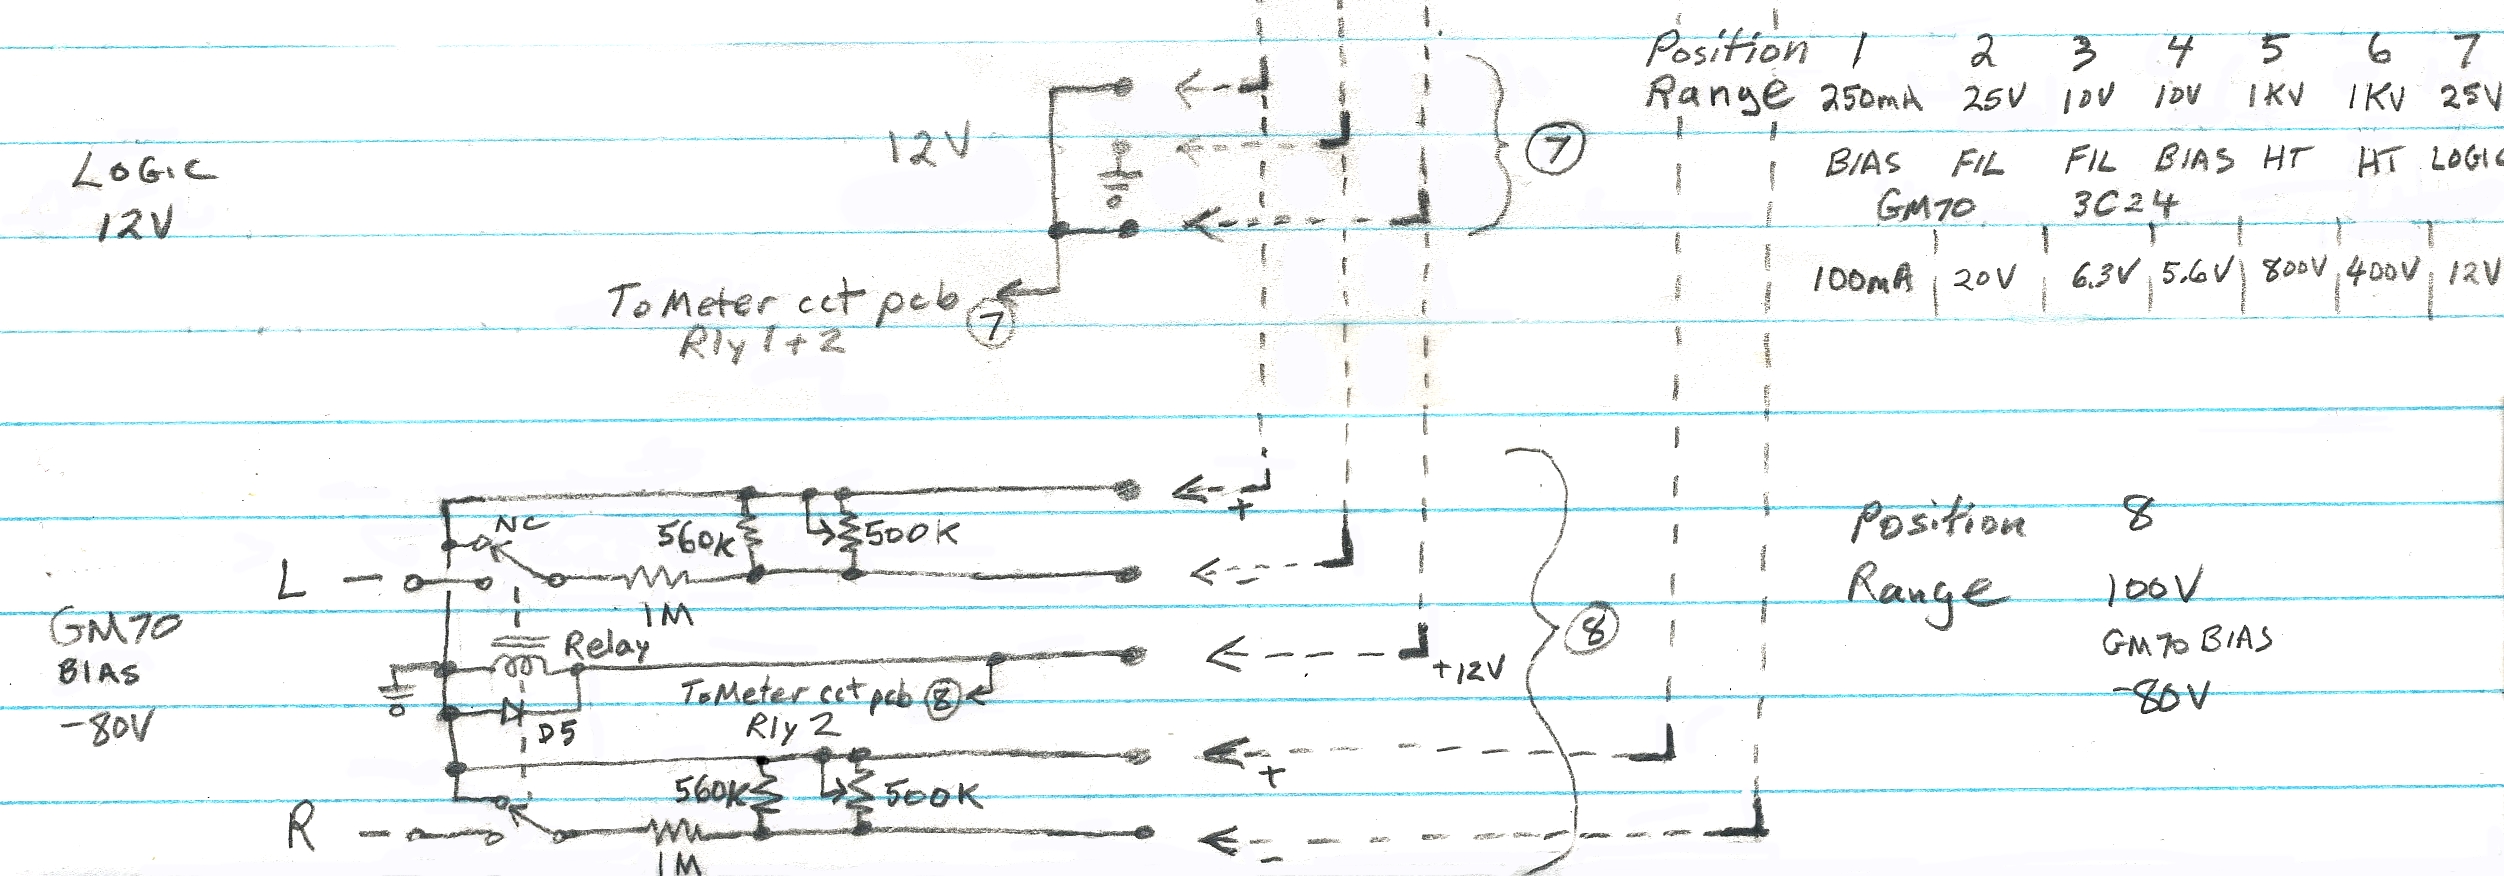 Position 1 2 3 4 5 6 7
Range 250mA 25V 10V 10V 1KV 1KV 25V
BIAS FIL FIL BIAS HT HT LOGIC
GM70 3C24
100mA 20V 6.3V 5.6V 800V 400V 12V
LOGIC
12V
12V
7
To Meter cct pcb
Rly 1+2
7
+
NC
560K
500K
L -
1M
-
GM70
BIAS
-80V
Relay
+12V
To Meter cct pcb 8
Rly 2
D5
8
Position 8
Range 100V
GM70 BIAS
-80V
+
560K
500K
R -
1M
-